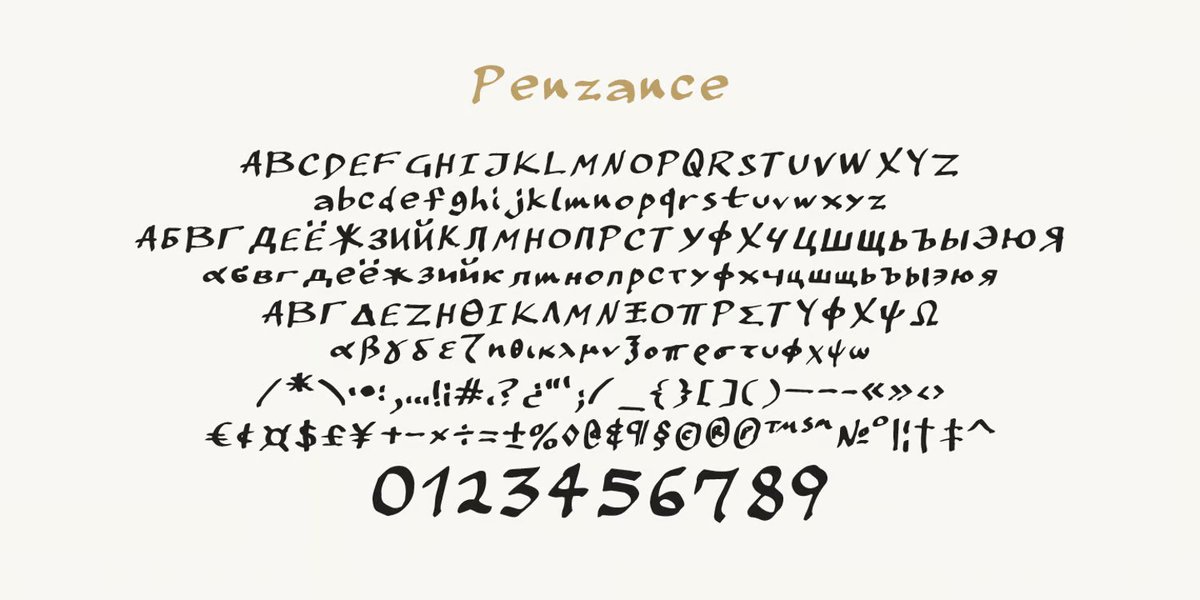 Penzance
ABCDEFGHIJKLMNOPQRSTUVWXYZ
abcdefghijklmnopqrstuvwxyz
АБВГДЕЁЖЗИЙКЛМНОПРСТУФХЧЦШЩЬЪЫЭЮЯ
абвгдеёжзийклмнопрстуфхчцшщьъыэюя
ΑΒΓΔΕΖΗΘΙΚΛΜΝΞΟΠΡΣΤΥΦΧΨΩ
αβγδεζηθικλμνξοπρστυφχψω
/*\·•:,...!¡#.?¿"';/_{}[]()—–-«»‹›
€¢¤$£¥+−×÷=±%◊@&¶§©®℗™℠№°|¦†‡^
0123456789